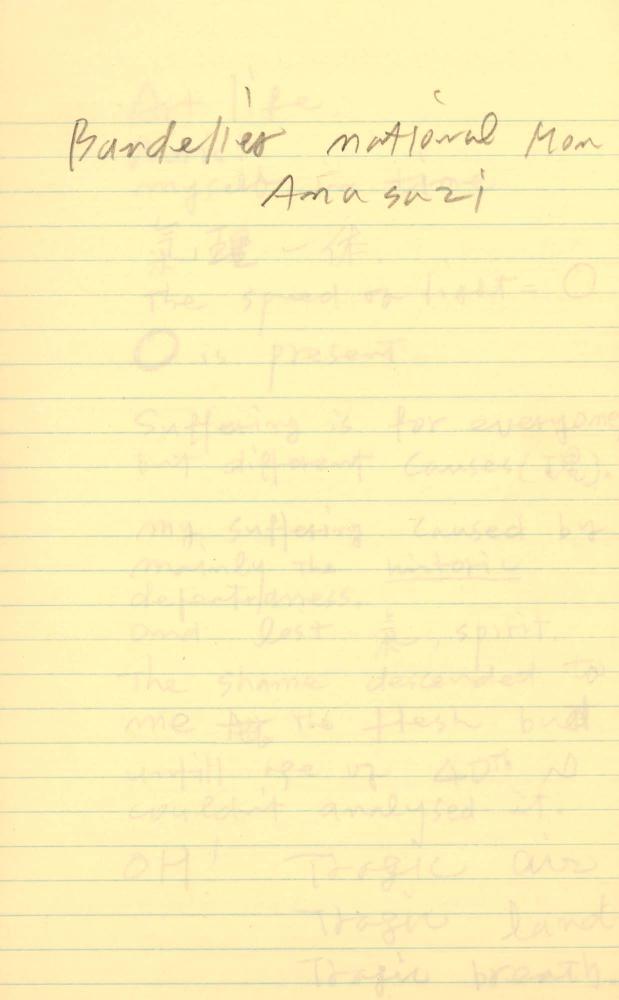 Bandelier national Mon
Anasazi
Art life
myself = time
氣, 理 一体.
The speed of light = O
O is present
Suffering is for everyone
but different causes (理).
my suffering caused by
mainly the historic
and lost 氣, spirit.
The shame descended to
me the flesh but
until age of 40th I
couldn't analysed it.
OH! Tragic air
Tragic land
Tragic breath.